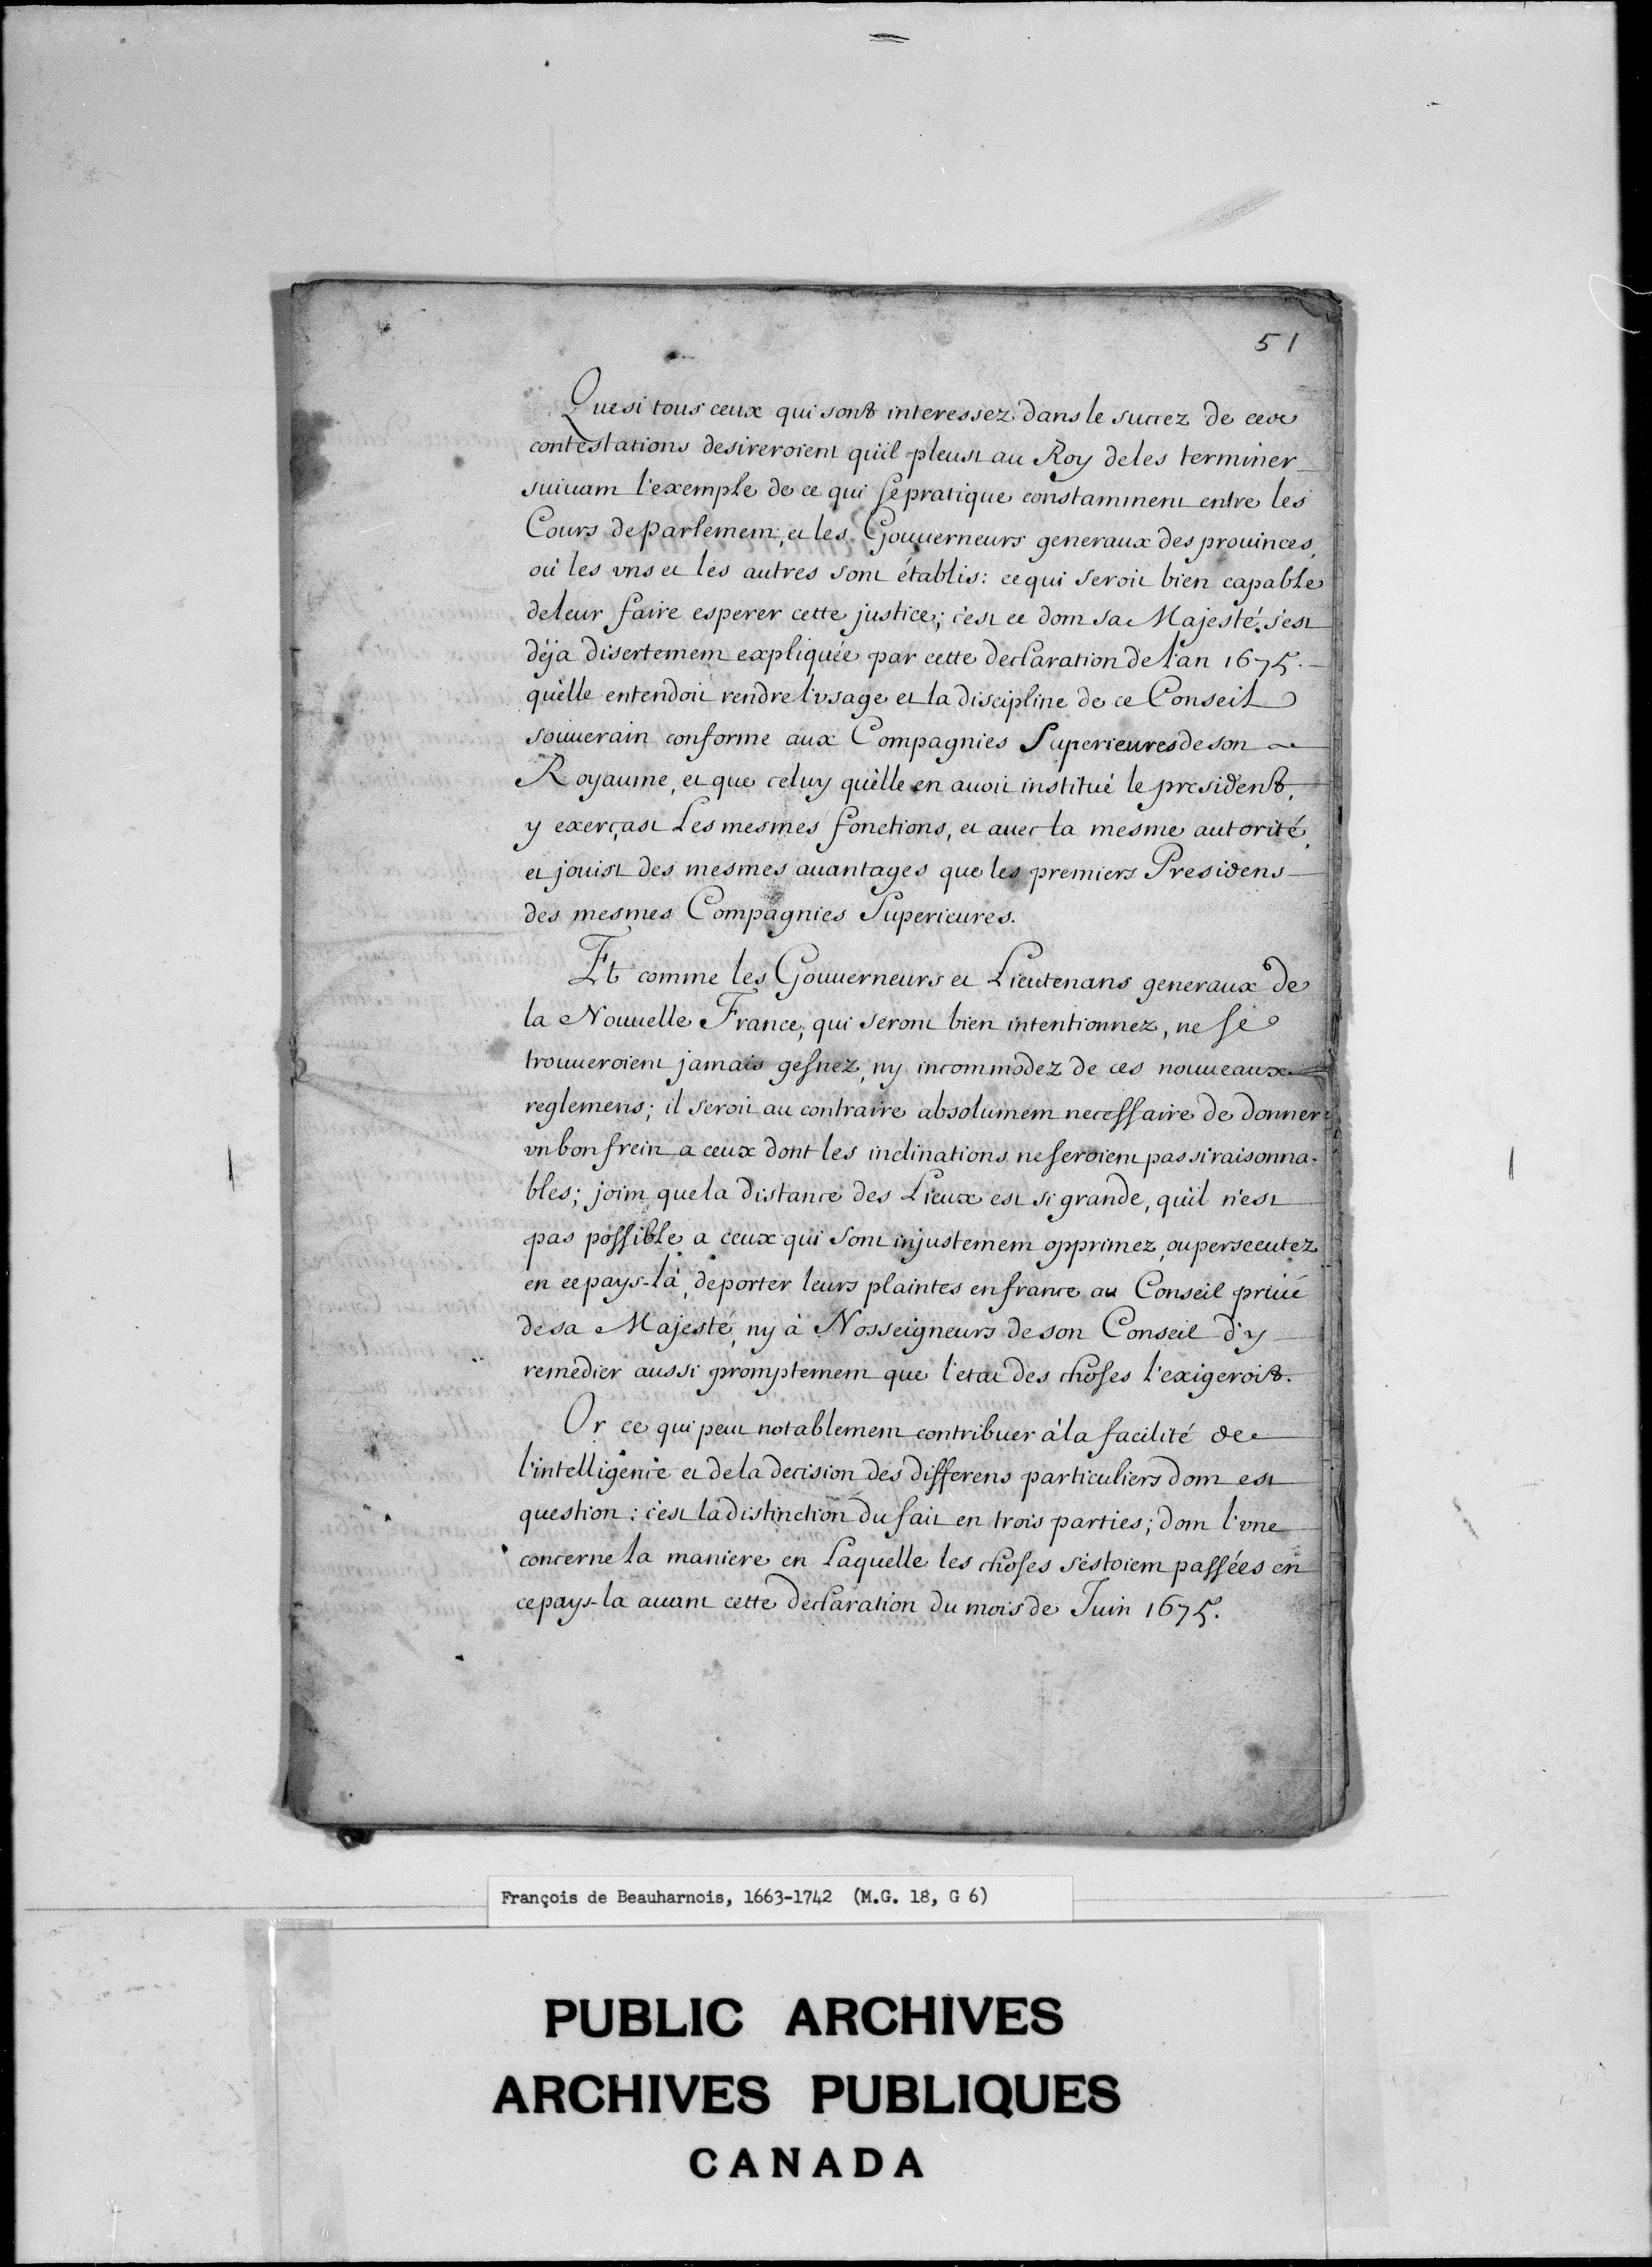 51
Que si tous ceux qui sont interessez dans le succez de ces
contestations desireroient qu'il pleust au Roy de les terminer
suiuant l'exemple de ce qui se pratique constamment entre les
Cours de parlement, et les Gouuerneurs generaux des prouinces,
où les vns et les autres sont établis: ce qui seroit bien capable
de leur faire esperer cette justice; c'est ce dont sa Majesté s'est
déja disertement expliquée par cette declaration de l'an 1675.
qu'elle entendoit rendre l'vsage et la discipline de ce Conseil
souuerain conforme aux Compagnies Superieures de son
Royaume, et que celuy qu'elle en auoit institué le president,
y exerçast Les mesmes fonctions, et auec la mesme autorité,
et jouist des mesmes auantages que les premiers Presidens
des mesmes Compagnies Superieures.
Et comme les Gouuerneurs et Lieutenans generaux de
la Nouuelle France, qui seront bien intentionnez, ne se
trouueroient jamais gesnez, ny incommodez de ces nouueaux
reglemens; il seroit au contraire absolument necessaire de donner
vn bon frein a ceux dont les inclinations ne seroient pas si raisonna-
bles; joint que la distance des Lieux est si grande, qu'il n'est
pas possible a ceux qui sont injustement opprimez, ou persecutez
en ce pays-là, de porter leurs plaintes en france au Conseil priué
de sa Majesté, ny à Nosseigneurs de son Conseil d'y
remedier aussi promptement que l'etat des choses l'exigeroit.
Or ce qui peut notablement contribuer à la facilité de
l'intelligence et de la decision des differens particuliers dont est
question: c'est la distinction du fait en trois parties; dont l'vne
concerne la maniere en Laquelle les choses s'estoient passées en
ce pays-la auant cette declaration du mois de Juin 1675.
François de Beauharnois, 1663-1742 (M.G. 18, G 6)
PUBLIC ARCHIVES
ARCHIVES PUBLIQUES
CANADA